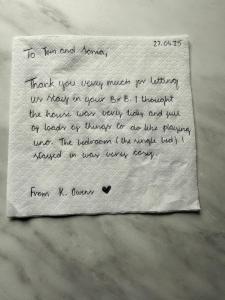 27.04.25
To Tom and Sonia,
Thank you very much for letting
us stay in your B&B. I thought
the house was very tidy and full
of loads of things to do like playing
uno. The bedroom (the single bed) I
stayed in was very cosy.
From K. Owens ♥